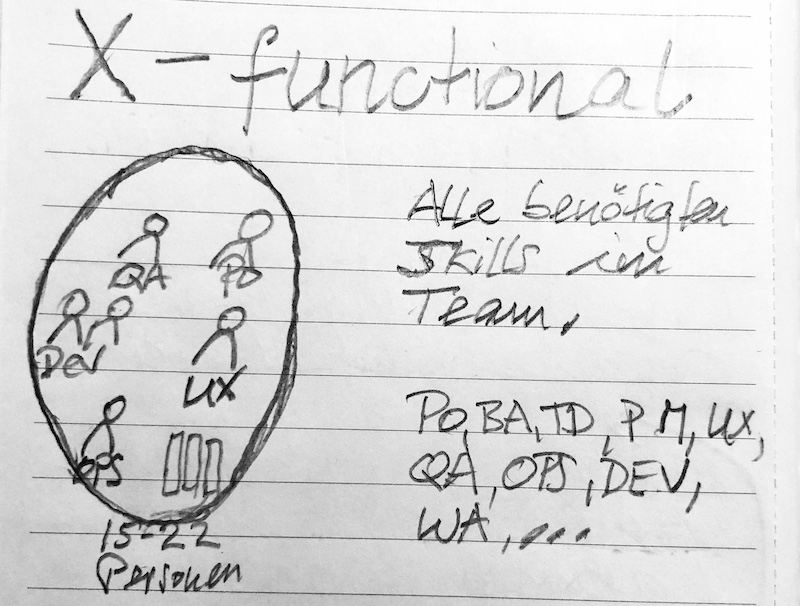 X-functional
QA PO
DEV
UX
OPS
15-22
Personen
Alle benötigten
Skills im
Team.
PO, BA, TD, PM, UX,
QA, OPS, DEV,
WA, ...